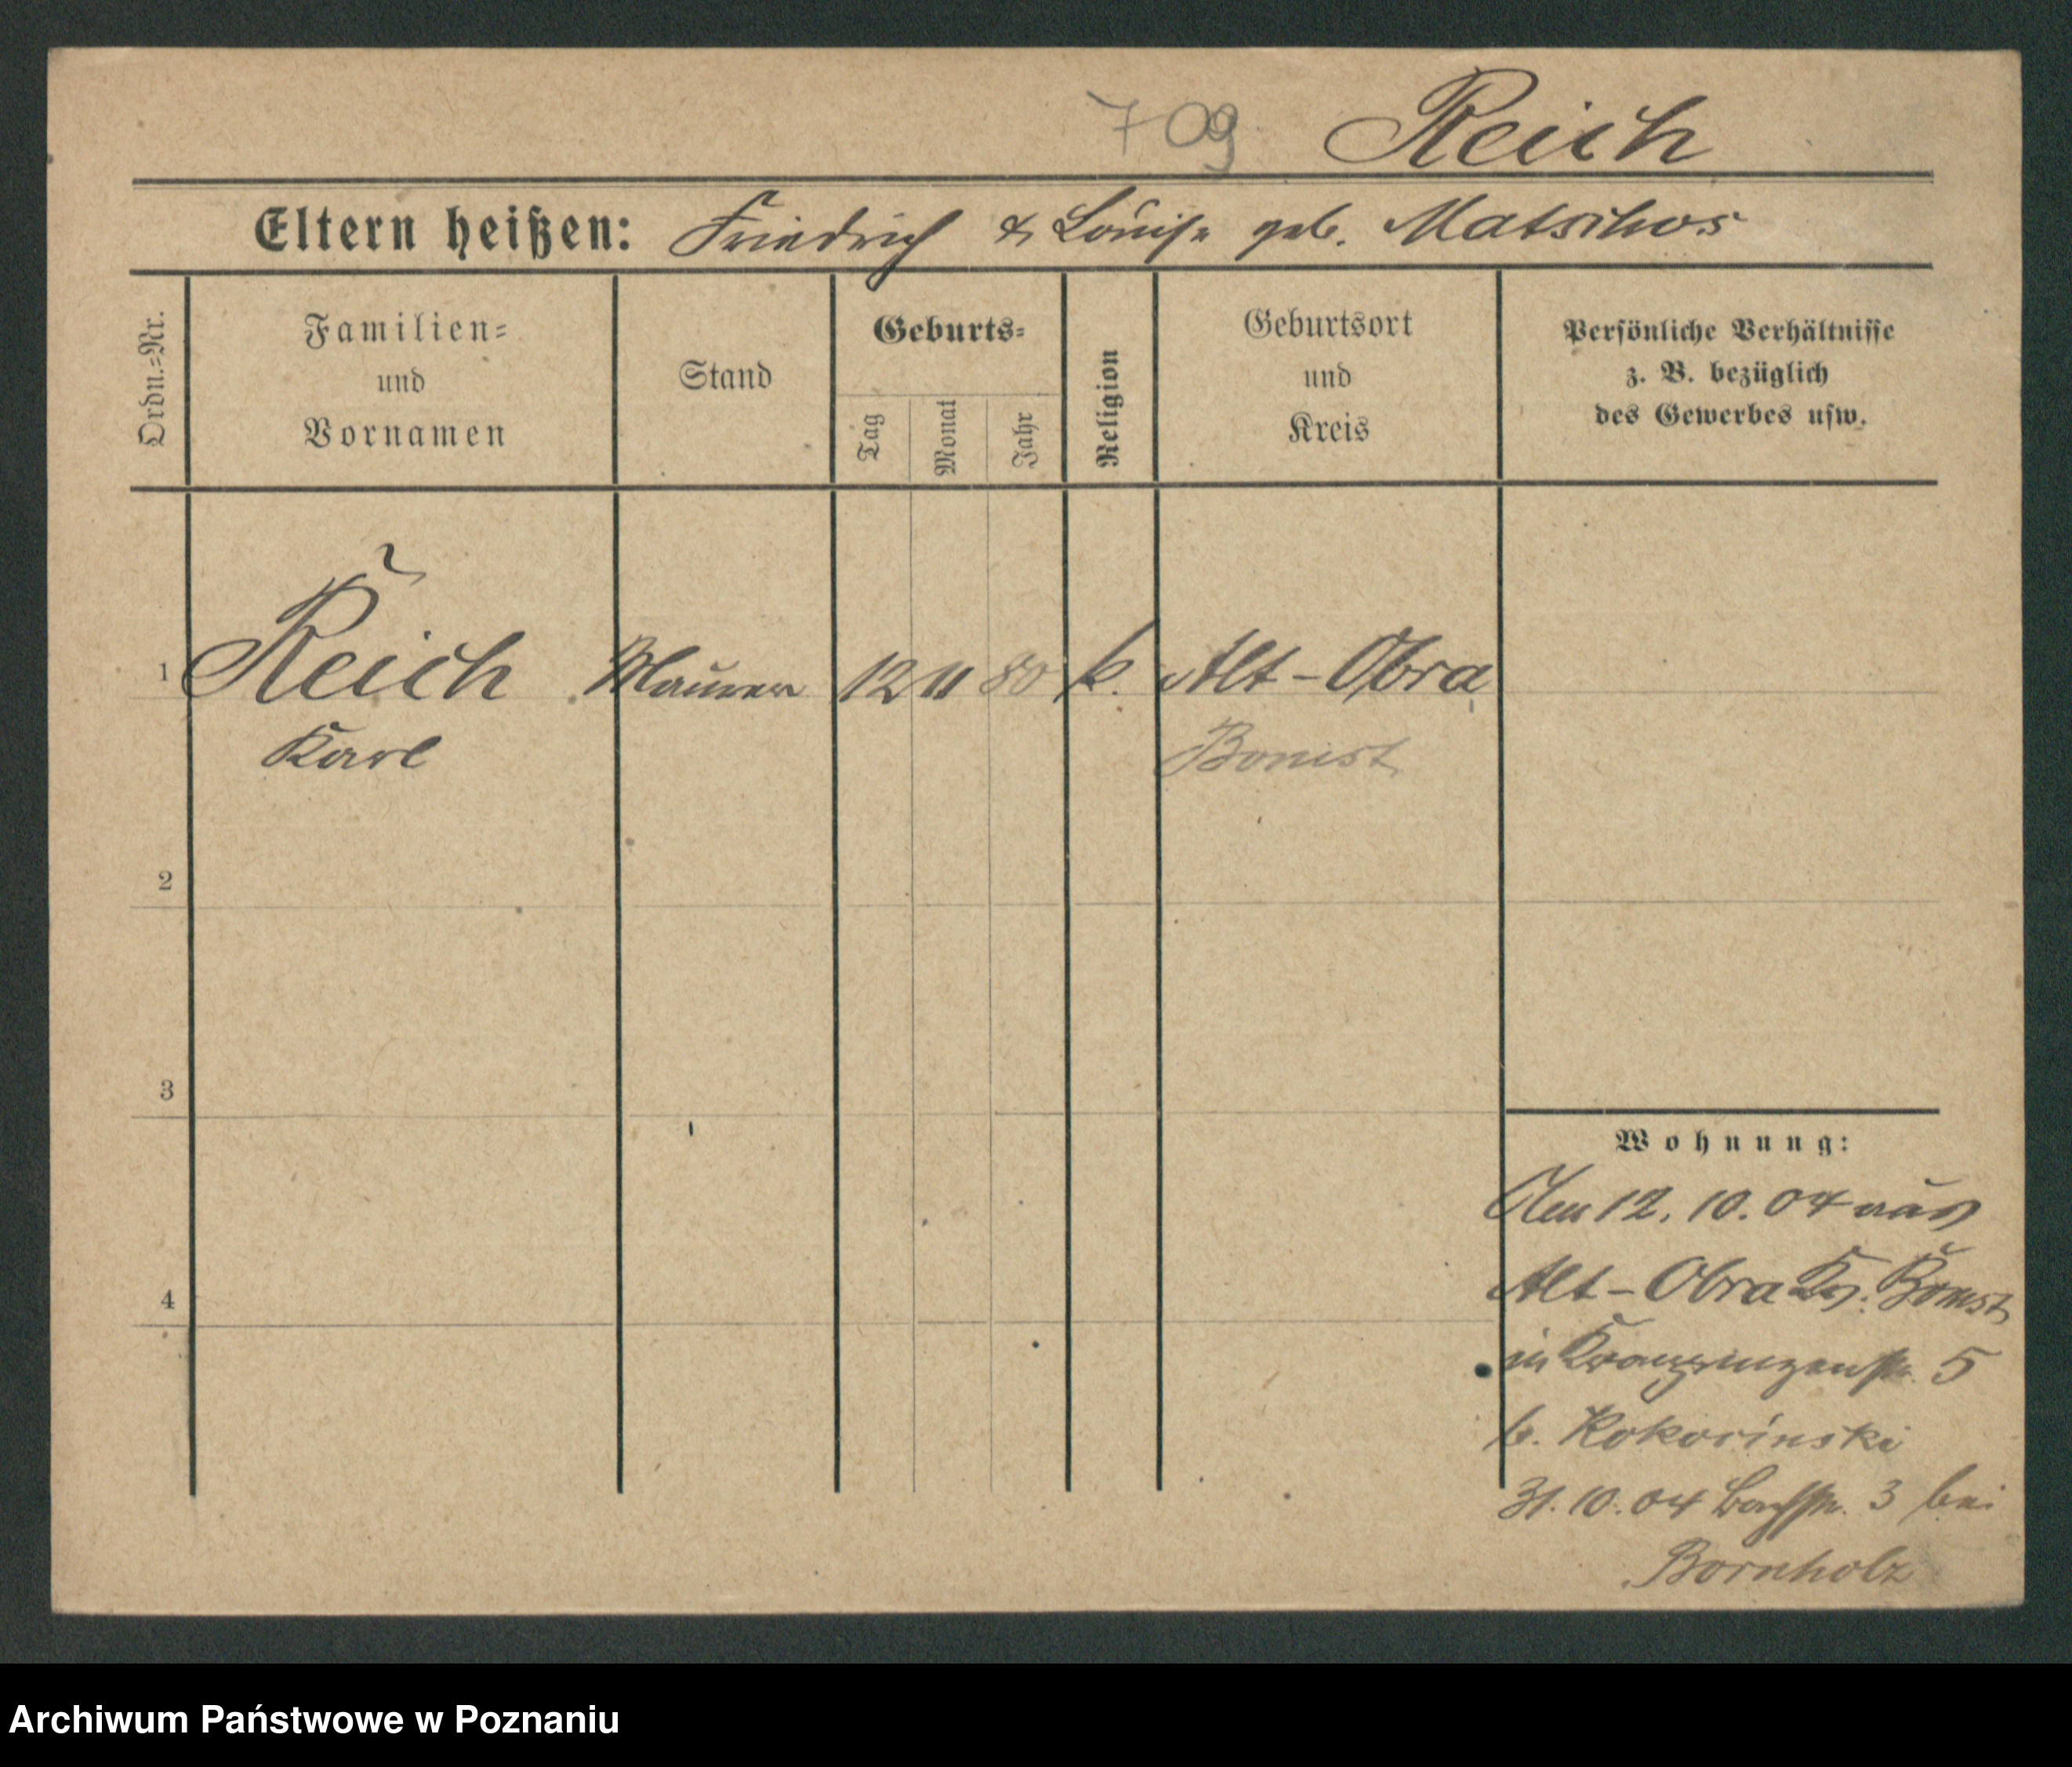 709 Reich
Eltern heißen: Friedrich & Louise geb. Matschos
Ordn.=Nr.
Familien=
und
Vornamen
Stand
Geburts=
Tag
Monat
Jahr
Religion
Geburtsort
und
Kreis
Persönliche Verhältnisse
z. B. bezüglich
des Gewerbes usw.
1 Reich Maurer 12 11 80 k. Alt-Obra
Karl Bomst
2
3
4
Wohnung:
12. 10. 04 aus
Alt-Obra Kr. Bomst
in Kronprinzenstr. 5
b. Kokocinski
31. 10. 04 Bachstr. 3 bei
Bornholz
Archiwum Państwowe w Poznaniu